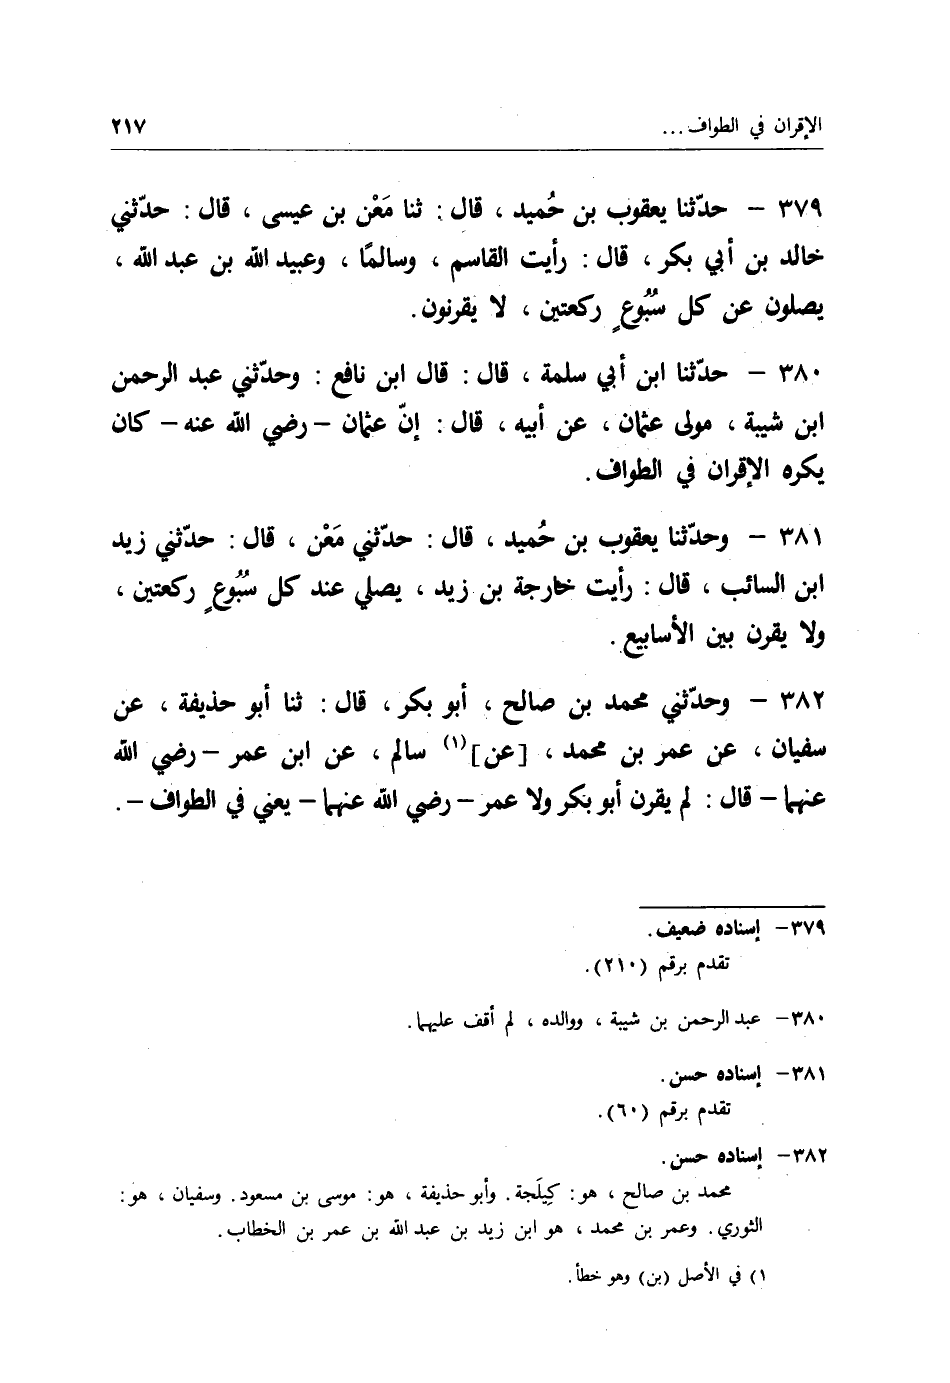 الإقران في الطواف ... ٢١٧
٣٧٩ – حدّثنا يعقوب بن حُميد ، قال : ثنا مَعْن بن عيسى ، قال : حدّثني
خالد بن أبي بكر ، قال : رأيت القاسم ، وسالمًا ، وعبيد الله بن عبد الله ،
يصلون عن كل سُبُوعٍ ركعتين ، لا يقرنون .
٣٨٠ – حدّثنا ابن أبي سلمة ، قال : قال ابن نافع : وحدّثني عبد الرحمن
ابن شيبة ، مولى عثمان ، عن أبيه ، قال : إنّ عثمان – رضي الله عنه – كان
يكره الإقران في الطواف .
٣٨١ – وحدّثنا يعقوب بن حُميد ، قال : حدّثني مَعْن ، قال : حدّثني زيد
ابن السائب ، قال : رأيت خارجة بن زيد ، يصلي عند كل سُبُوعٍ ركعتين ،
ولا يقرن بين الأسابيع .
٣٨٢ – وحدّثني محمد بن صالح ، أبو بكر ، قال : ثنا أبو حذيفة ، عن
سفيان ، عن عمر بن محمد ، [عن](١) سالم ، عن ابن عمر – رضي الله
عنهما – قال : لم يقرن أبو بكر ولا عمر – رضي الله عنهما – يعني في الطواف – .
٣٧٩– إسناده ضعيف .
تقدم برقم (٢١٠) .
٣٨٠– عبد الرحمن بن شيبة ، ووالده ، لم أقف عليهما .
٣٨١– إسناده حسن .
تقدم برقم (٦٠) .
٣٨٢– إسناده حسن .
محمد بن صالح ، هو : كِيلَجة . وأبو حذيفة ، هو : موسى بن مسعود . وسفيان ، هو :
الثوري . وعمر بن محمد ، هو ابن زيد بن عبد الله بن عمر بن الخطاب .
١) في الأصل (بن) وهو خطأ .